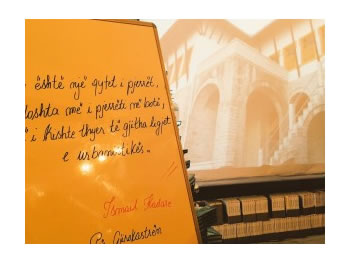 është një qytet i pjerrët,
ndoshta më i pjerrëti në botë,
i kishte thyer të gjitha ligjet
e urbanistikës."
Ismail Kadare
Për Gjirokastrën